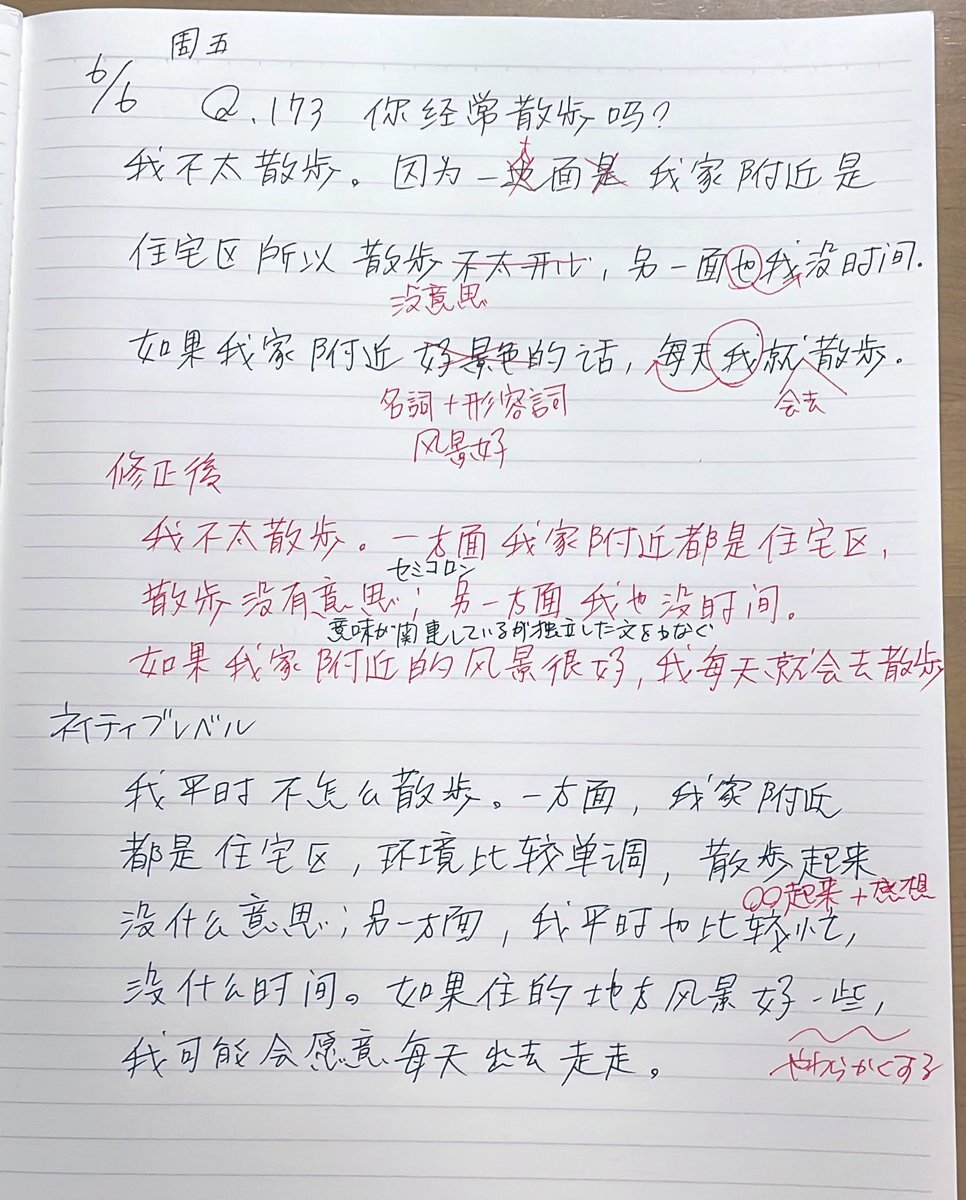 周五
6/6 Q.173 你经常散步吗?
我不太散步。因为一边面是 我家附近是
方
住宅区所以 散步不太开心, 另一面也我没时间.
没意思
如果我家附近好景色的话, 每天我就散步.
名詞+形容詞
会去
风景好
修正後
我不太散步。一方面 我家附近都是住宅区,
セミコロン
散步没有意思; 另一方面 我也没时间。
意味が関連しているが独立した文をつなぐ
如果我家附近的风景很好, 我每天就会去散步
ネイティブレベル
我平时不怎么散步。一方面, 我家附近
都是住宅区, 环境比较单调, 散步起来
〇〇起来+感想
没什么意思; 另一方面, 我平时也比较忙,
没什么时间。如果住的地方风景好一些,
我可能会愿意每天出去走走。
やわらかくする